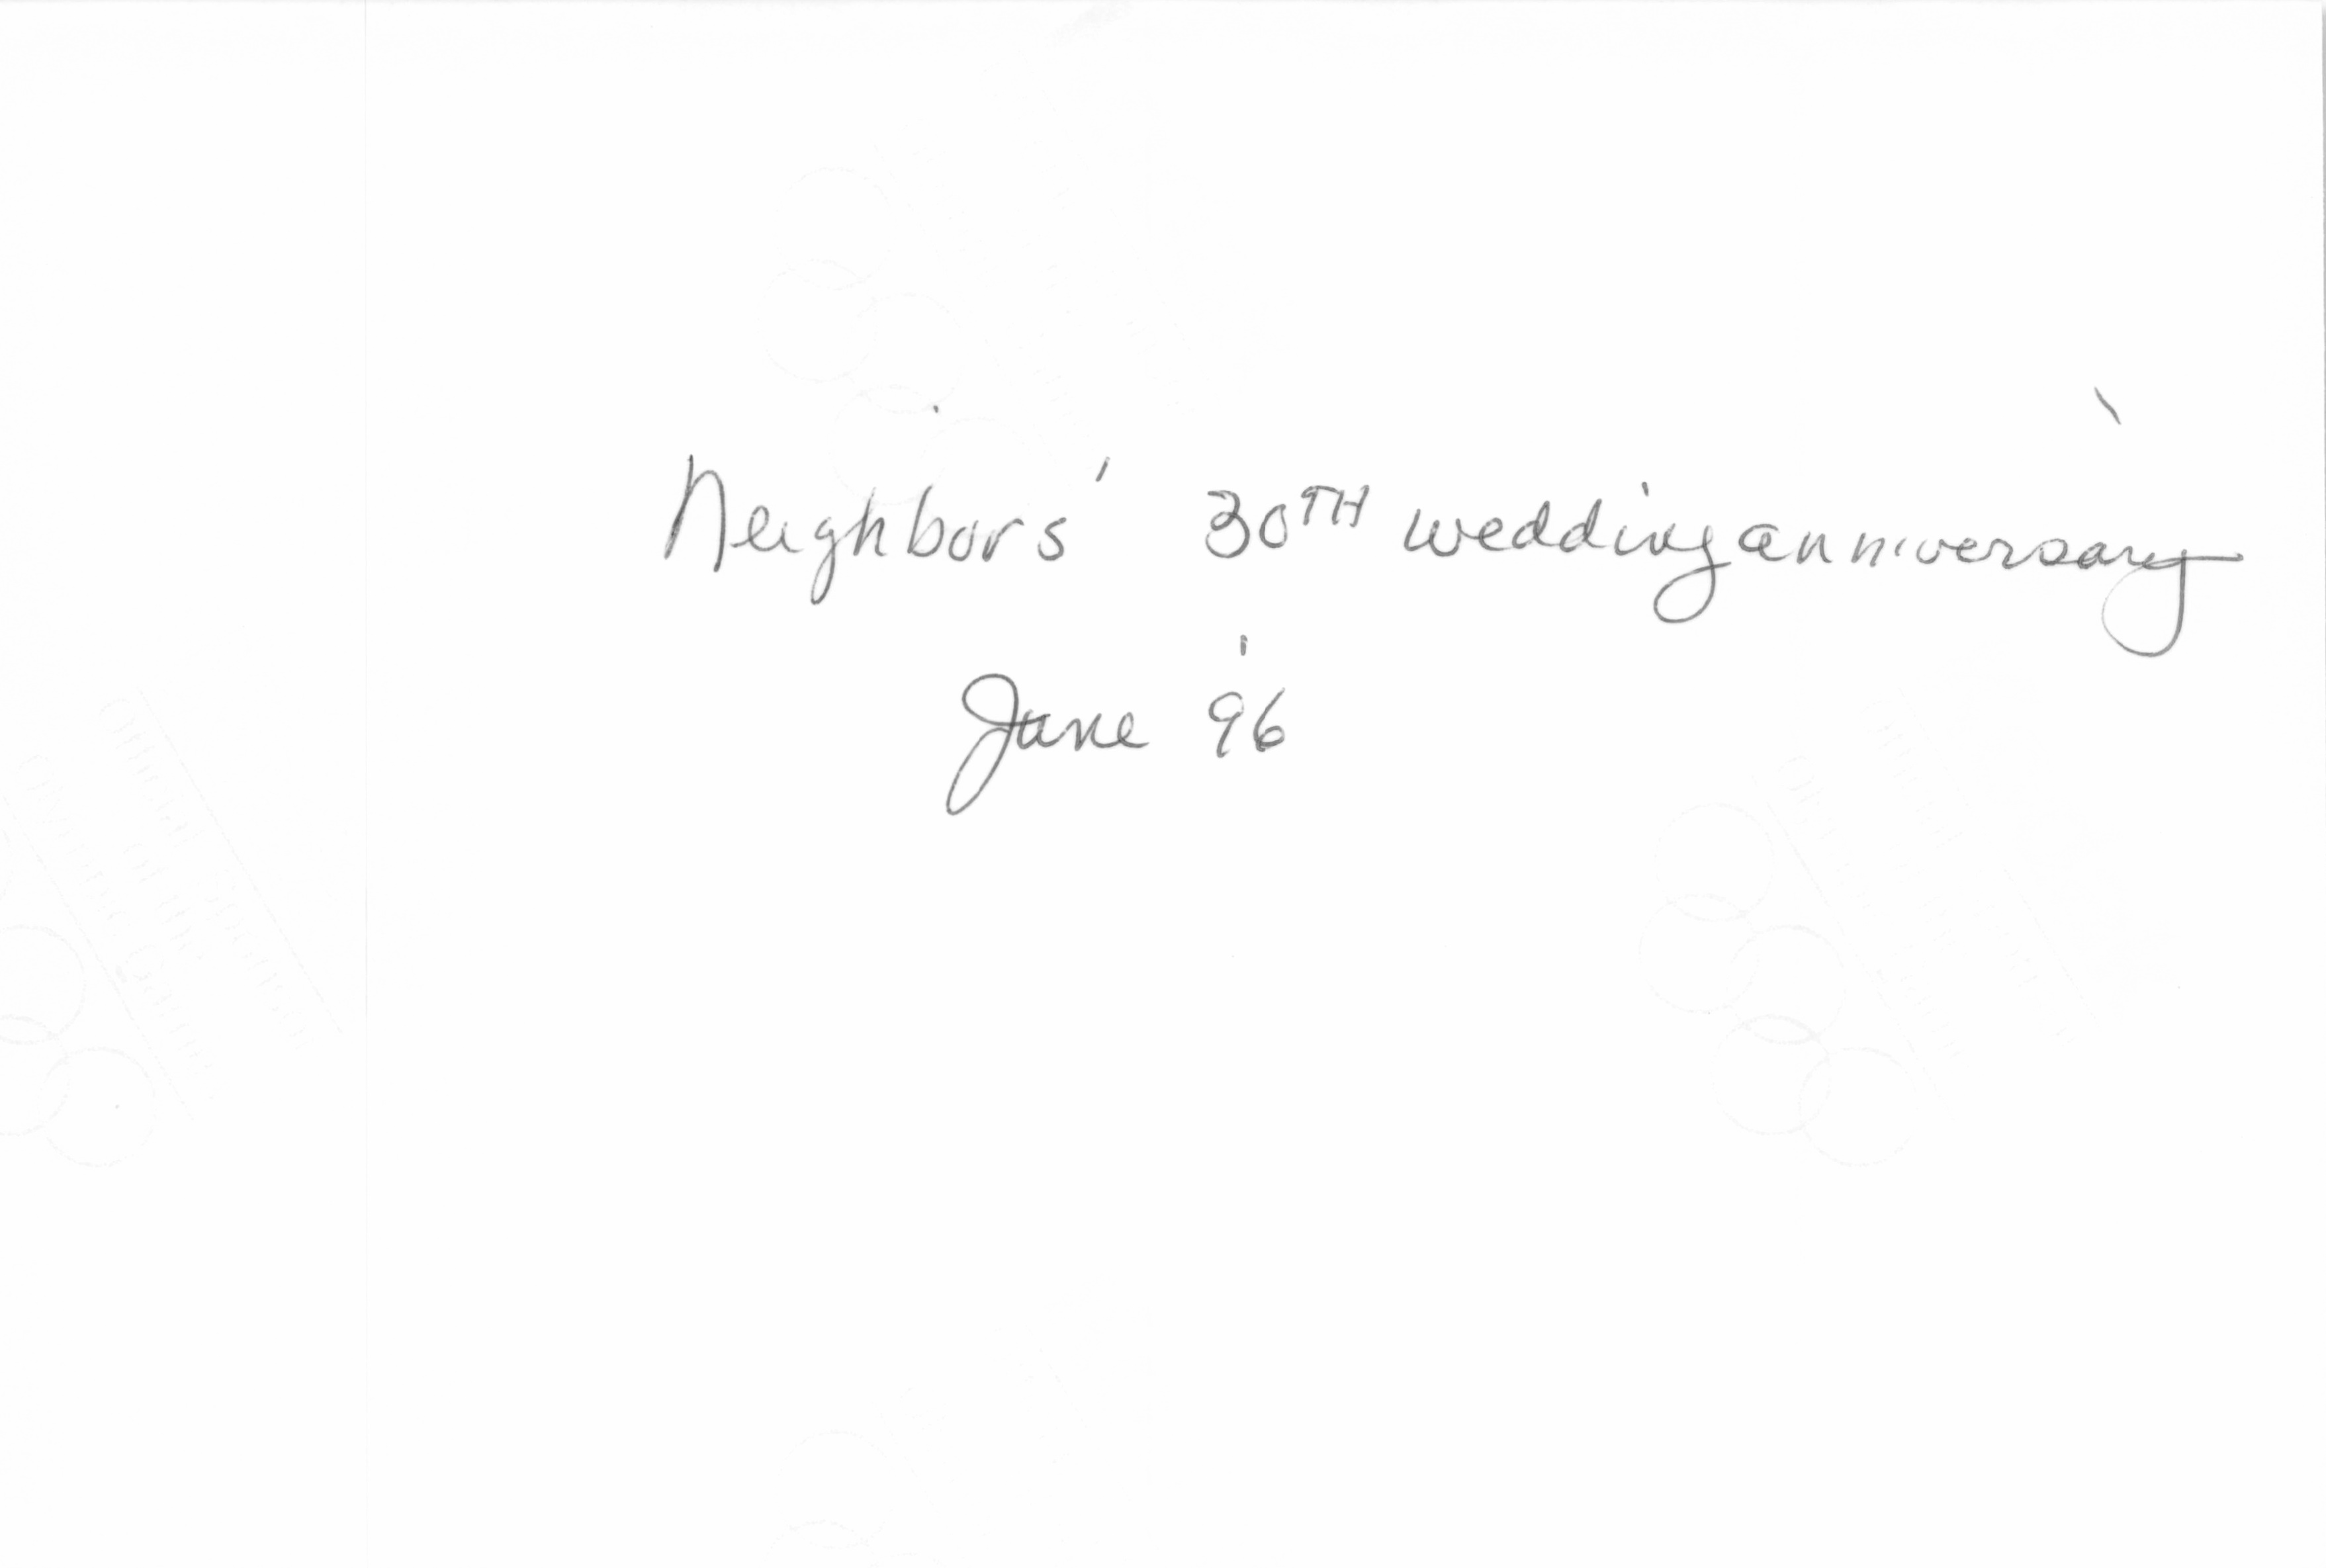 Neighbors' 30TH wedding anniversary
June '96